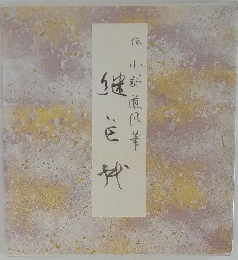 伝小野道風筆
継色紙